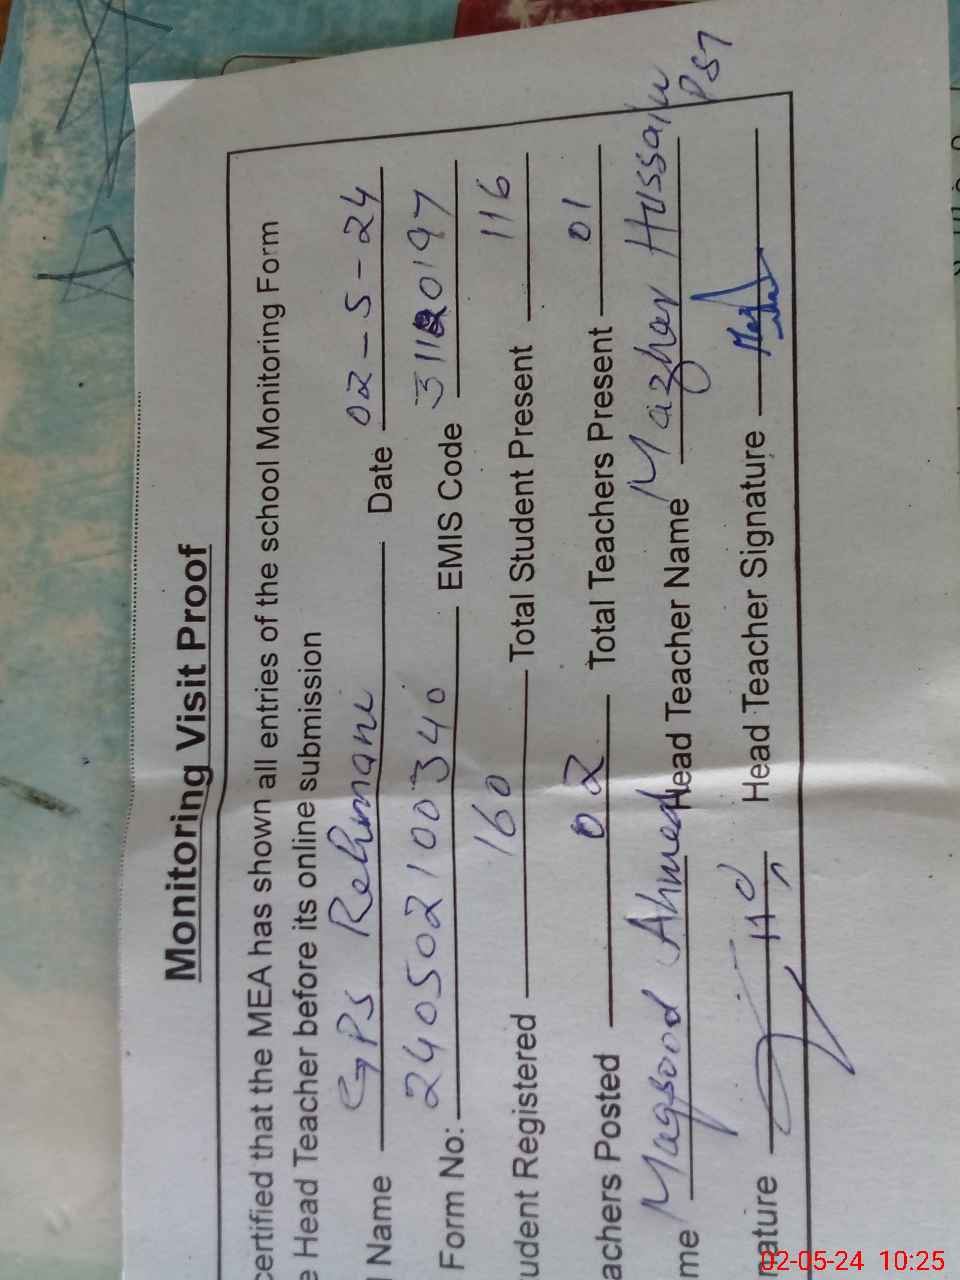 Monitoring Visit Proof
certified that the MEA has shown all entries of the school Monitoring Form
e Head Teacher before its online submission
l Name GPS Rehmani Date 02-5-24
Form No: 240502100340 EMIS Code 31120197
udent Registered 160 Total Student Present 116
achers Posted 02 Total Teachers Present 01
me Maqsood Ahmed Head Teacher Name Mazhar Hussain PST
nature Head Teacher Signature
02-05-24 10:25